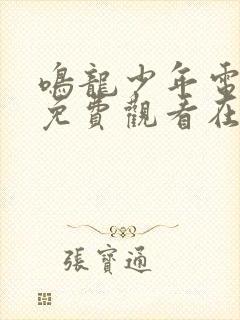 鳴龍少年電
免費觀看在
張寶通